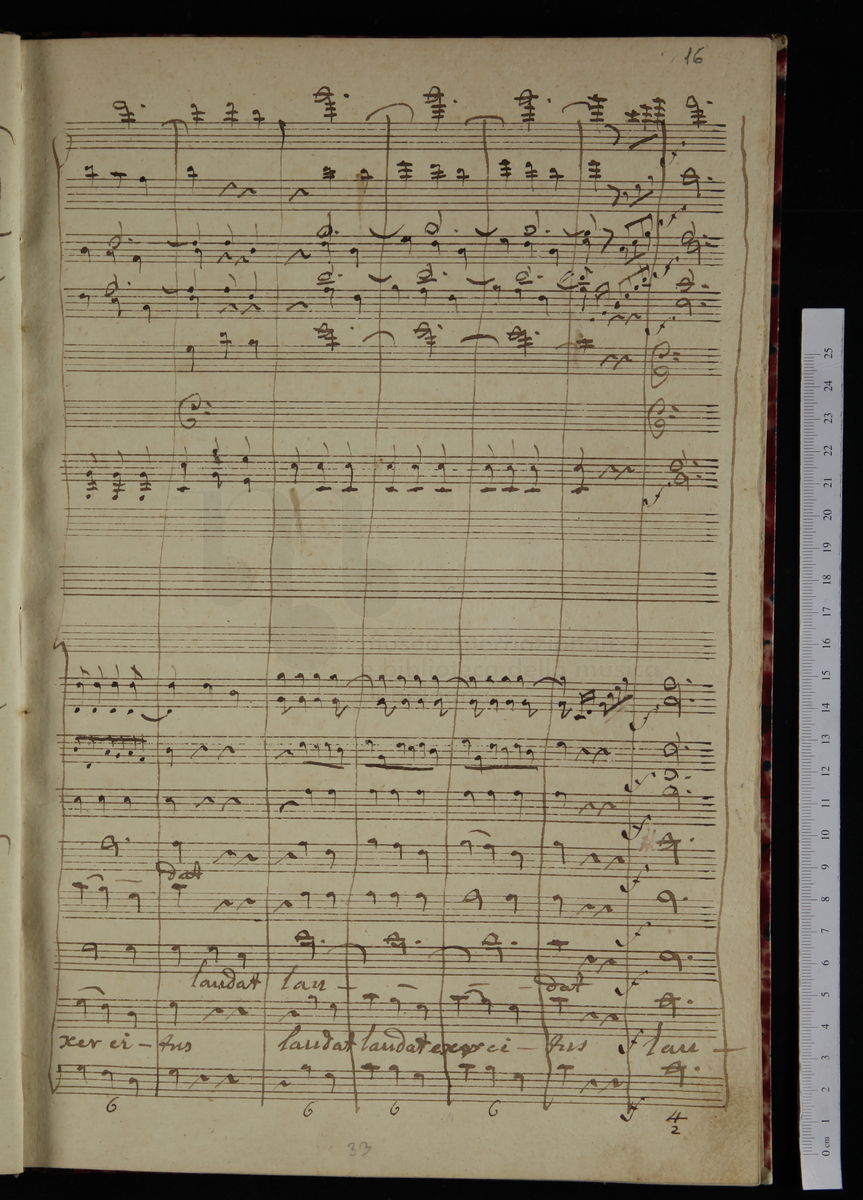 16
dat
laudat lau - - - dat
xer ci - tus laudat laudat exerci - tus lau -
6 6 6 6 4
2
33
25
24
23
22
21
20
19
18
17
16
15
14
13
12
11
10
9
8
7
6
5
4
3
2
1
0 cm